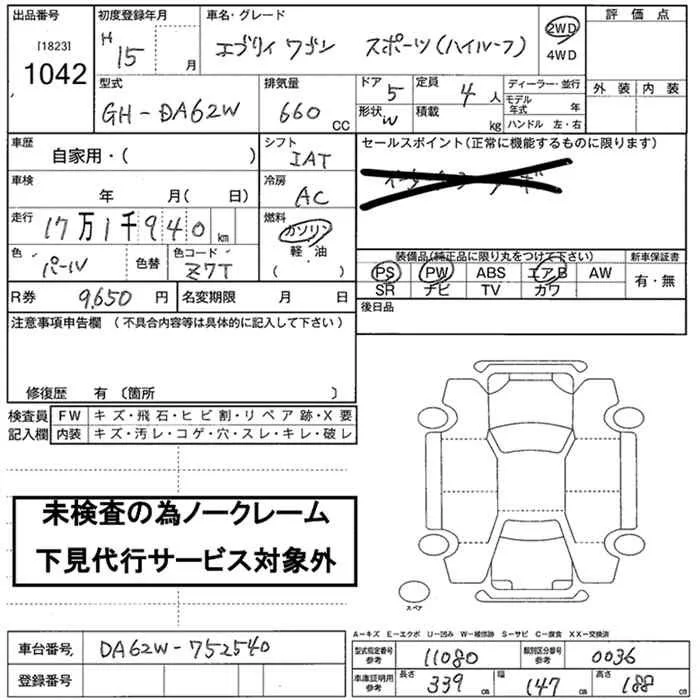 出品番号 初度登録年月 車名・グレード 評価点
[1823]
1042
H 15 月 エブリィ ワゴン スポーツ(ハイルーフ) 2WD
4WD
型式 排気量 ドア 定員 ディーラー・並行 外装 内装
GH-DA62W 660 CC 5 4 人 モデル年式 年
形状 W 積載 kg ハンドル 左・右
車歴 シフト セールスポイント(正常に機能するものに限ります)
自家用・( ) IAT
車検 冷房
年 月( 日) AC
走行 17万1千940 km 燃料
ガソリン
軽・油
( )
色 パール 色替 色コード Z7T
装備品(純正品に限り丸をつけて下さい) 新車保証書
PS PW ABS エアB AW 有・無
SR ナビ TV カワ
R券 9,650 円 名変期限 月 日 後日品
注意事項申告欄(不具合内容等は具体的に記入して下さい)
修復歴 有(箇所 )
検査員 FW キズ・飛石・ヒビ割・リペア跡・X要
記入欄 内装 キズ・汚レ・コゲ・穴・スレ・キレ・破レ
未検査の為ノークレーム
下見代行サービス対象外
スペア
A-キズ E-エクボ U-凹み W-補修跡 S-サビ C-腐食 XX-交換済
車台番号 DA62W-752540
登録番号
型式指定番号 参考 11080 類別区分番号 参考 0036
車庫証明用 参考 長さ 339 cm 幅 147 cm 高さ 188 cm